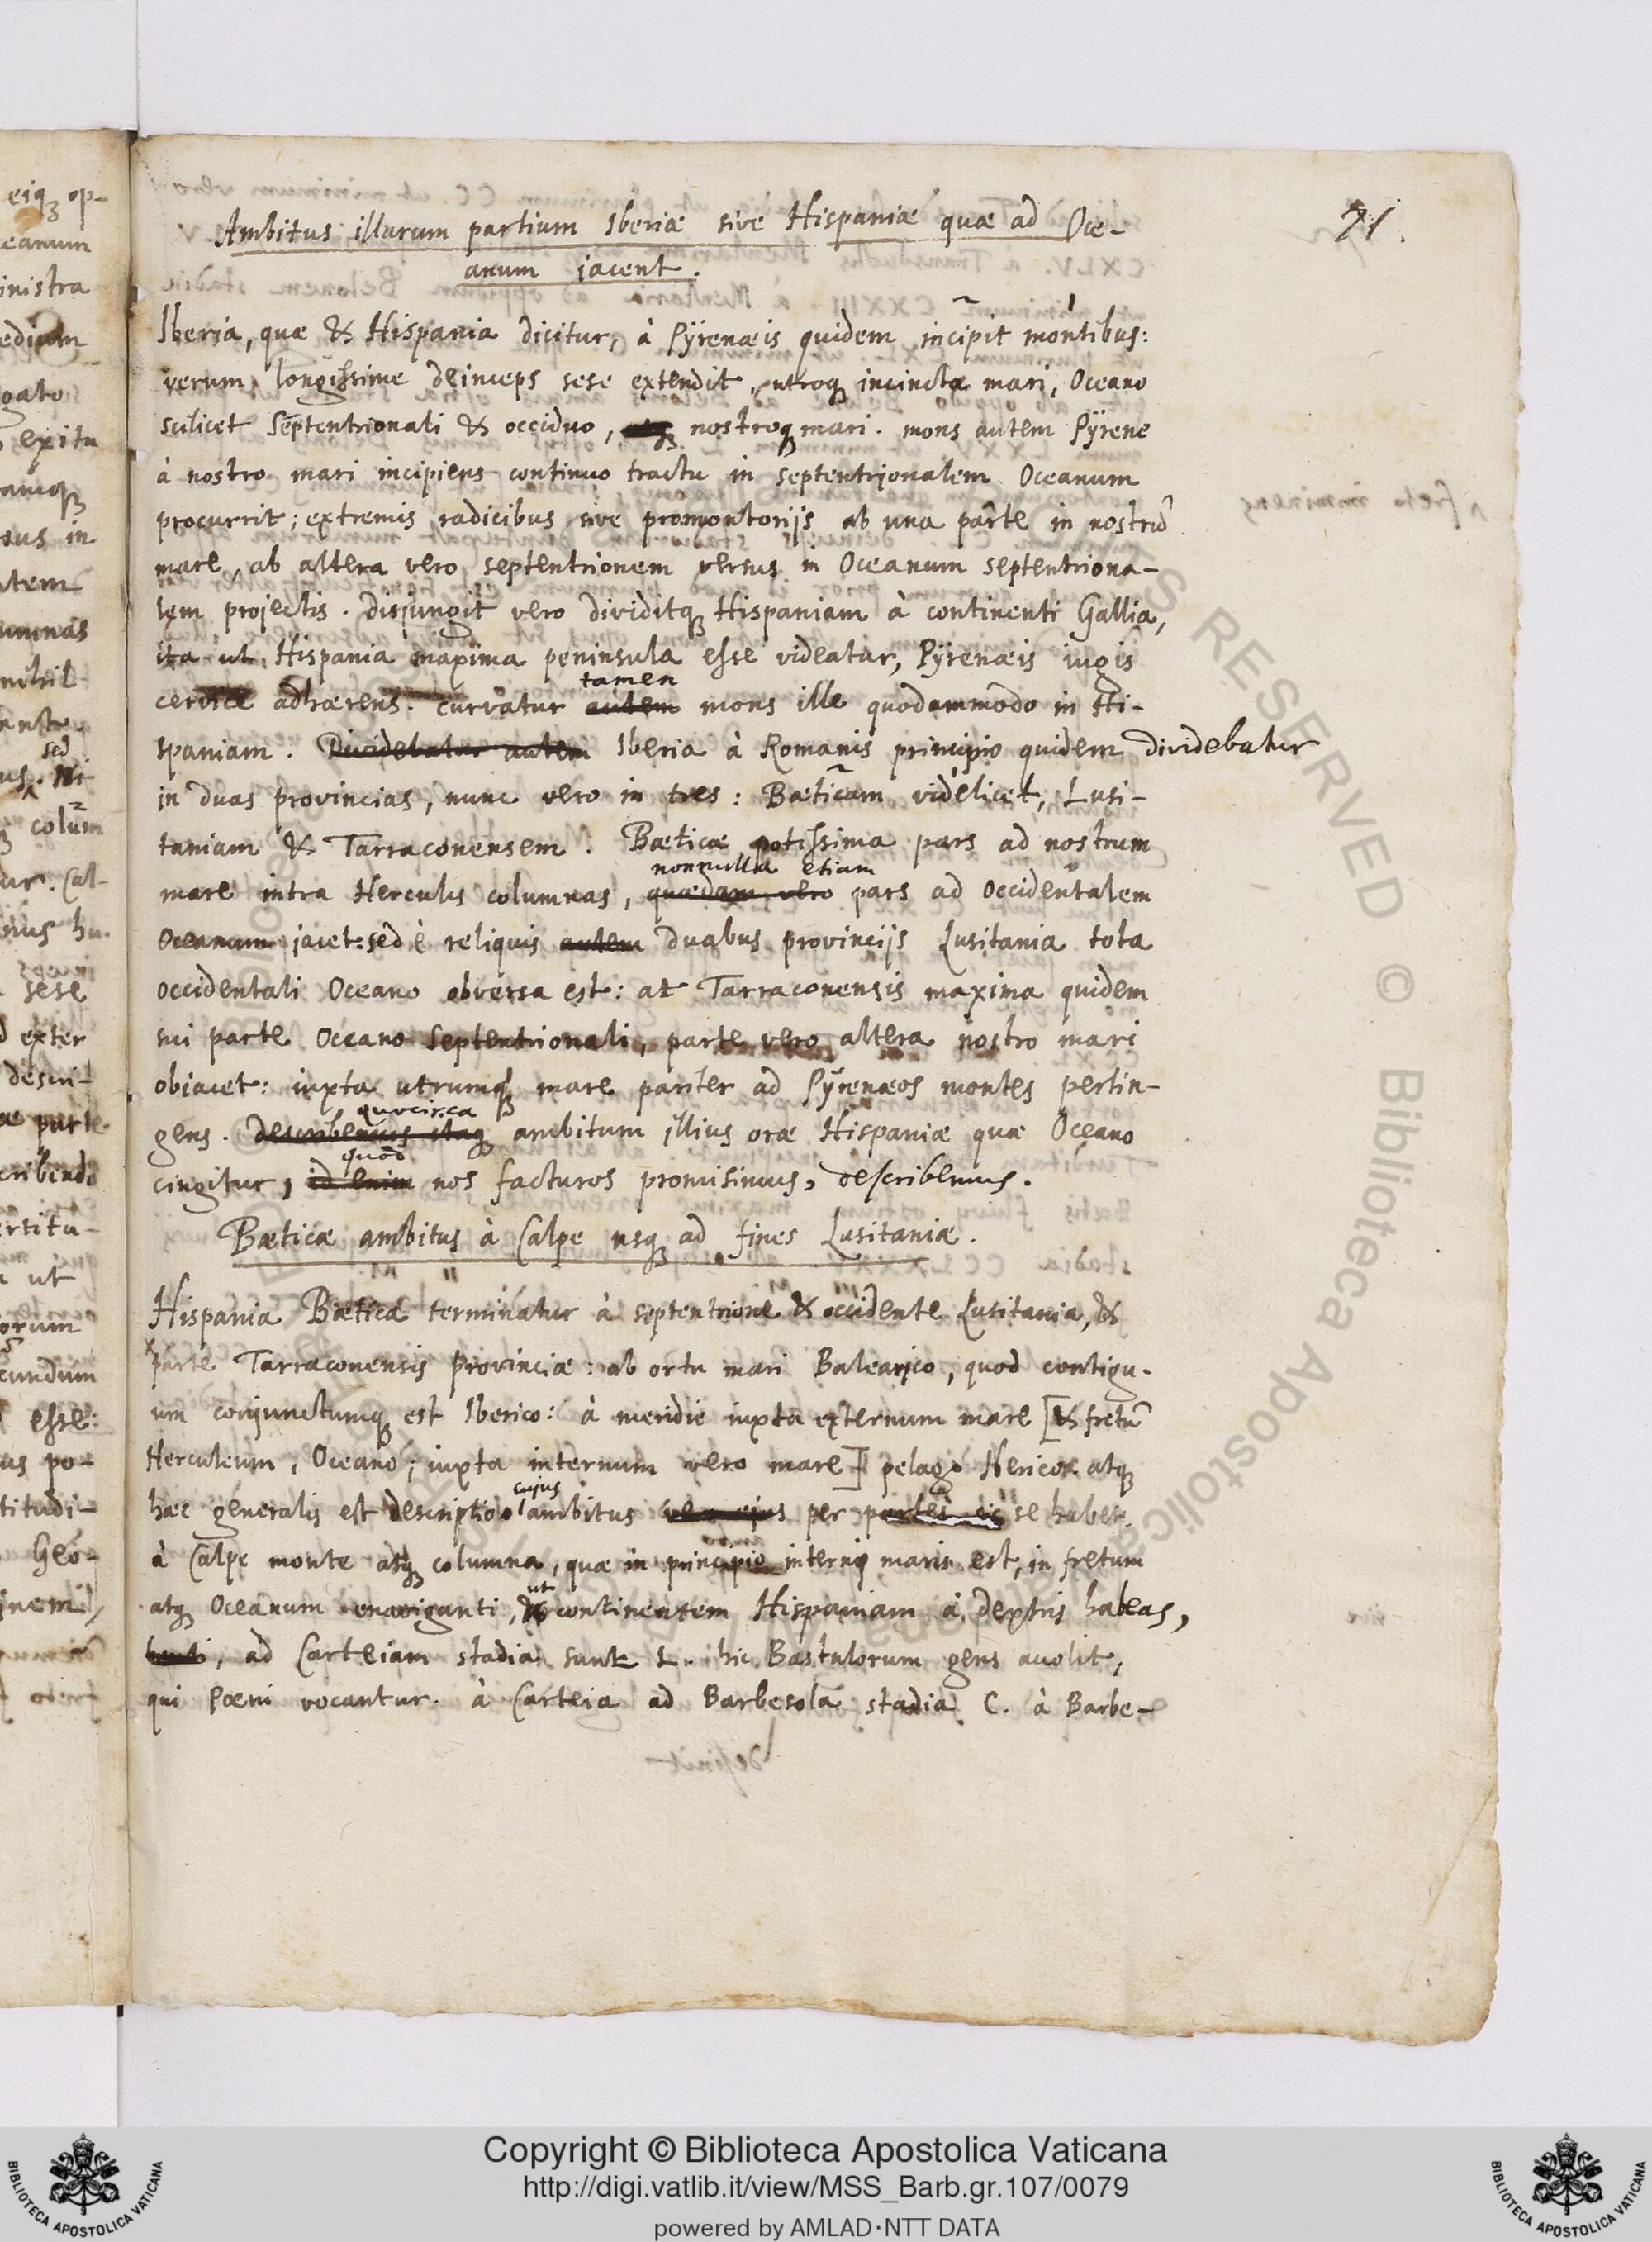 71.
Ambitus illarum partium Iberiæ sive Hispaniæ quæ ad Oce-
anum jacent.
Iberia, quæ & Hispania dicitur, à Pÿrenæis quidem incipit montibus:
verum longissime deinceps sese extendit, utroqꝫ incincta mari, Oceano
scilicet Septentrionali & occiduo, atqꝫ nostroqꝫ mari. mons autem Pÿrene
à nostro mari incipiens continuo tractu in septentrionalem Oceanum
procurrit; extremis radicibus sive promontorijs ab una parte in nostrũ
mare, ab altera vero septentrionem versus in Oceanum septentriona-
lem projectis. Disjungit vero dividitqꝫ Hispaniam à continenti Gallia,
ita ut Hispania maxima peninsula esse videatur, Pÿrenæis iugis
tamen
cervice adhærens. curvatur autem mons ille quodammodo in Hi-
spaniam. Dividebatur autem Iberia à Romanis principio quidem dividebatur
in duas provincias, nunc vero in tres: Bæticam videlicet, Lusi-
taniam & Tarraconensem. Bæticæ potissima pars ad nostrum
nonnulla etiam
mare intra Herculis columnas, quædam vero pars ad Occidentalem
Oceanum jacet: sed è reliquis autem duabus provincijs Lusitania tota
occidentali Oceano obversa est: at Tarraconensis maxima quidem
sui parte Oceano Septentrionali, parte vero altera nostro mari
obiacet: iuxta utrumqꝫ mare pariter ad Pÿrenæos montes pertin-
quocirca
gens. describemus itaqꝫ ambitum illius oræ Hispaniæ quæ Oceano
quod
cingitur, id enim nos facturos promisimus, describemus.
Bæticæ ambitus à Calpe usqꝫ ad fines Lusitaniæ.
Hispania Bætica terminatur à septentrione & occidente Lusitania, &
parte Tarraconensis provinciæ: ab ortu mari Balearico, quod contigu-
um conjunctumqꝫ est Iberico: à meridie iuxta externum mare [& fretũ
Herculeum, Oceano; iuxta internum vero mare] pelago Iberico: atqꝫ
cujus
hæc generalis est descriptio ambitus vero ejus per partes sic se habet.
à Calpe monte atqꝫ columna, quæ in principio interni maris est, in fretum
ut
atqꝫ Oceanum enaviganti, & continentem Hispaniam à dextris habeas,
benti, ad Carteiam stadia sunt L. hic Bastulorum gens accolit,
qui Pœni vocantur. à Carteia ad Barbesolã stadia C. à Barbe-
eiqꝫ op-
ceanum
inistra
ediam
gato
exitu
amqꝫ
sus in
utem
umnas
nihil
sed
us. Ni-
colũm
ur. Cal-
nus hu-
sese
exter
descri-
æ parte
cribendo
ertitu-
ut
orum
cundum
esse:
us po-
titudi-
Geo-
inem,
RESERVED © Biblioteca Apostolica Vaticana
Copyright © Biblioteca Apostolica Vaticana
http://digi.vatlib.it/view/MSS_Barb.gr.107/0079
powered by AMLAD·NTT DATA
BIBLIOTECA APOSTOLICA VATICANA
BIBLIOTECA APOSTOLICA VATICANA